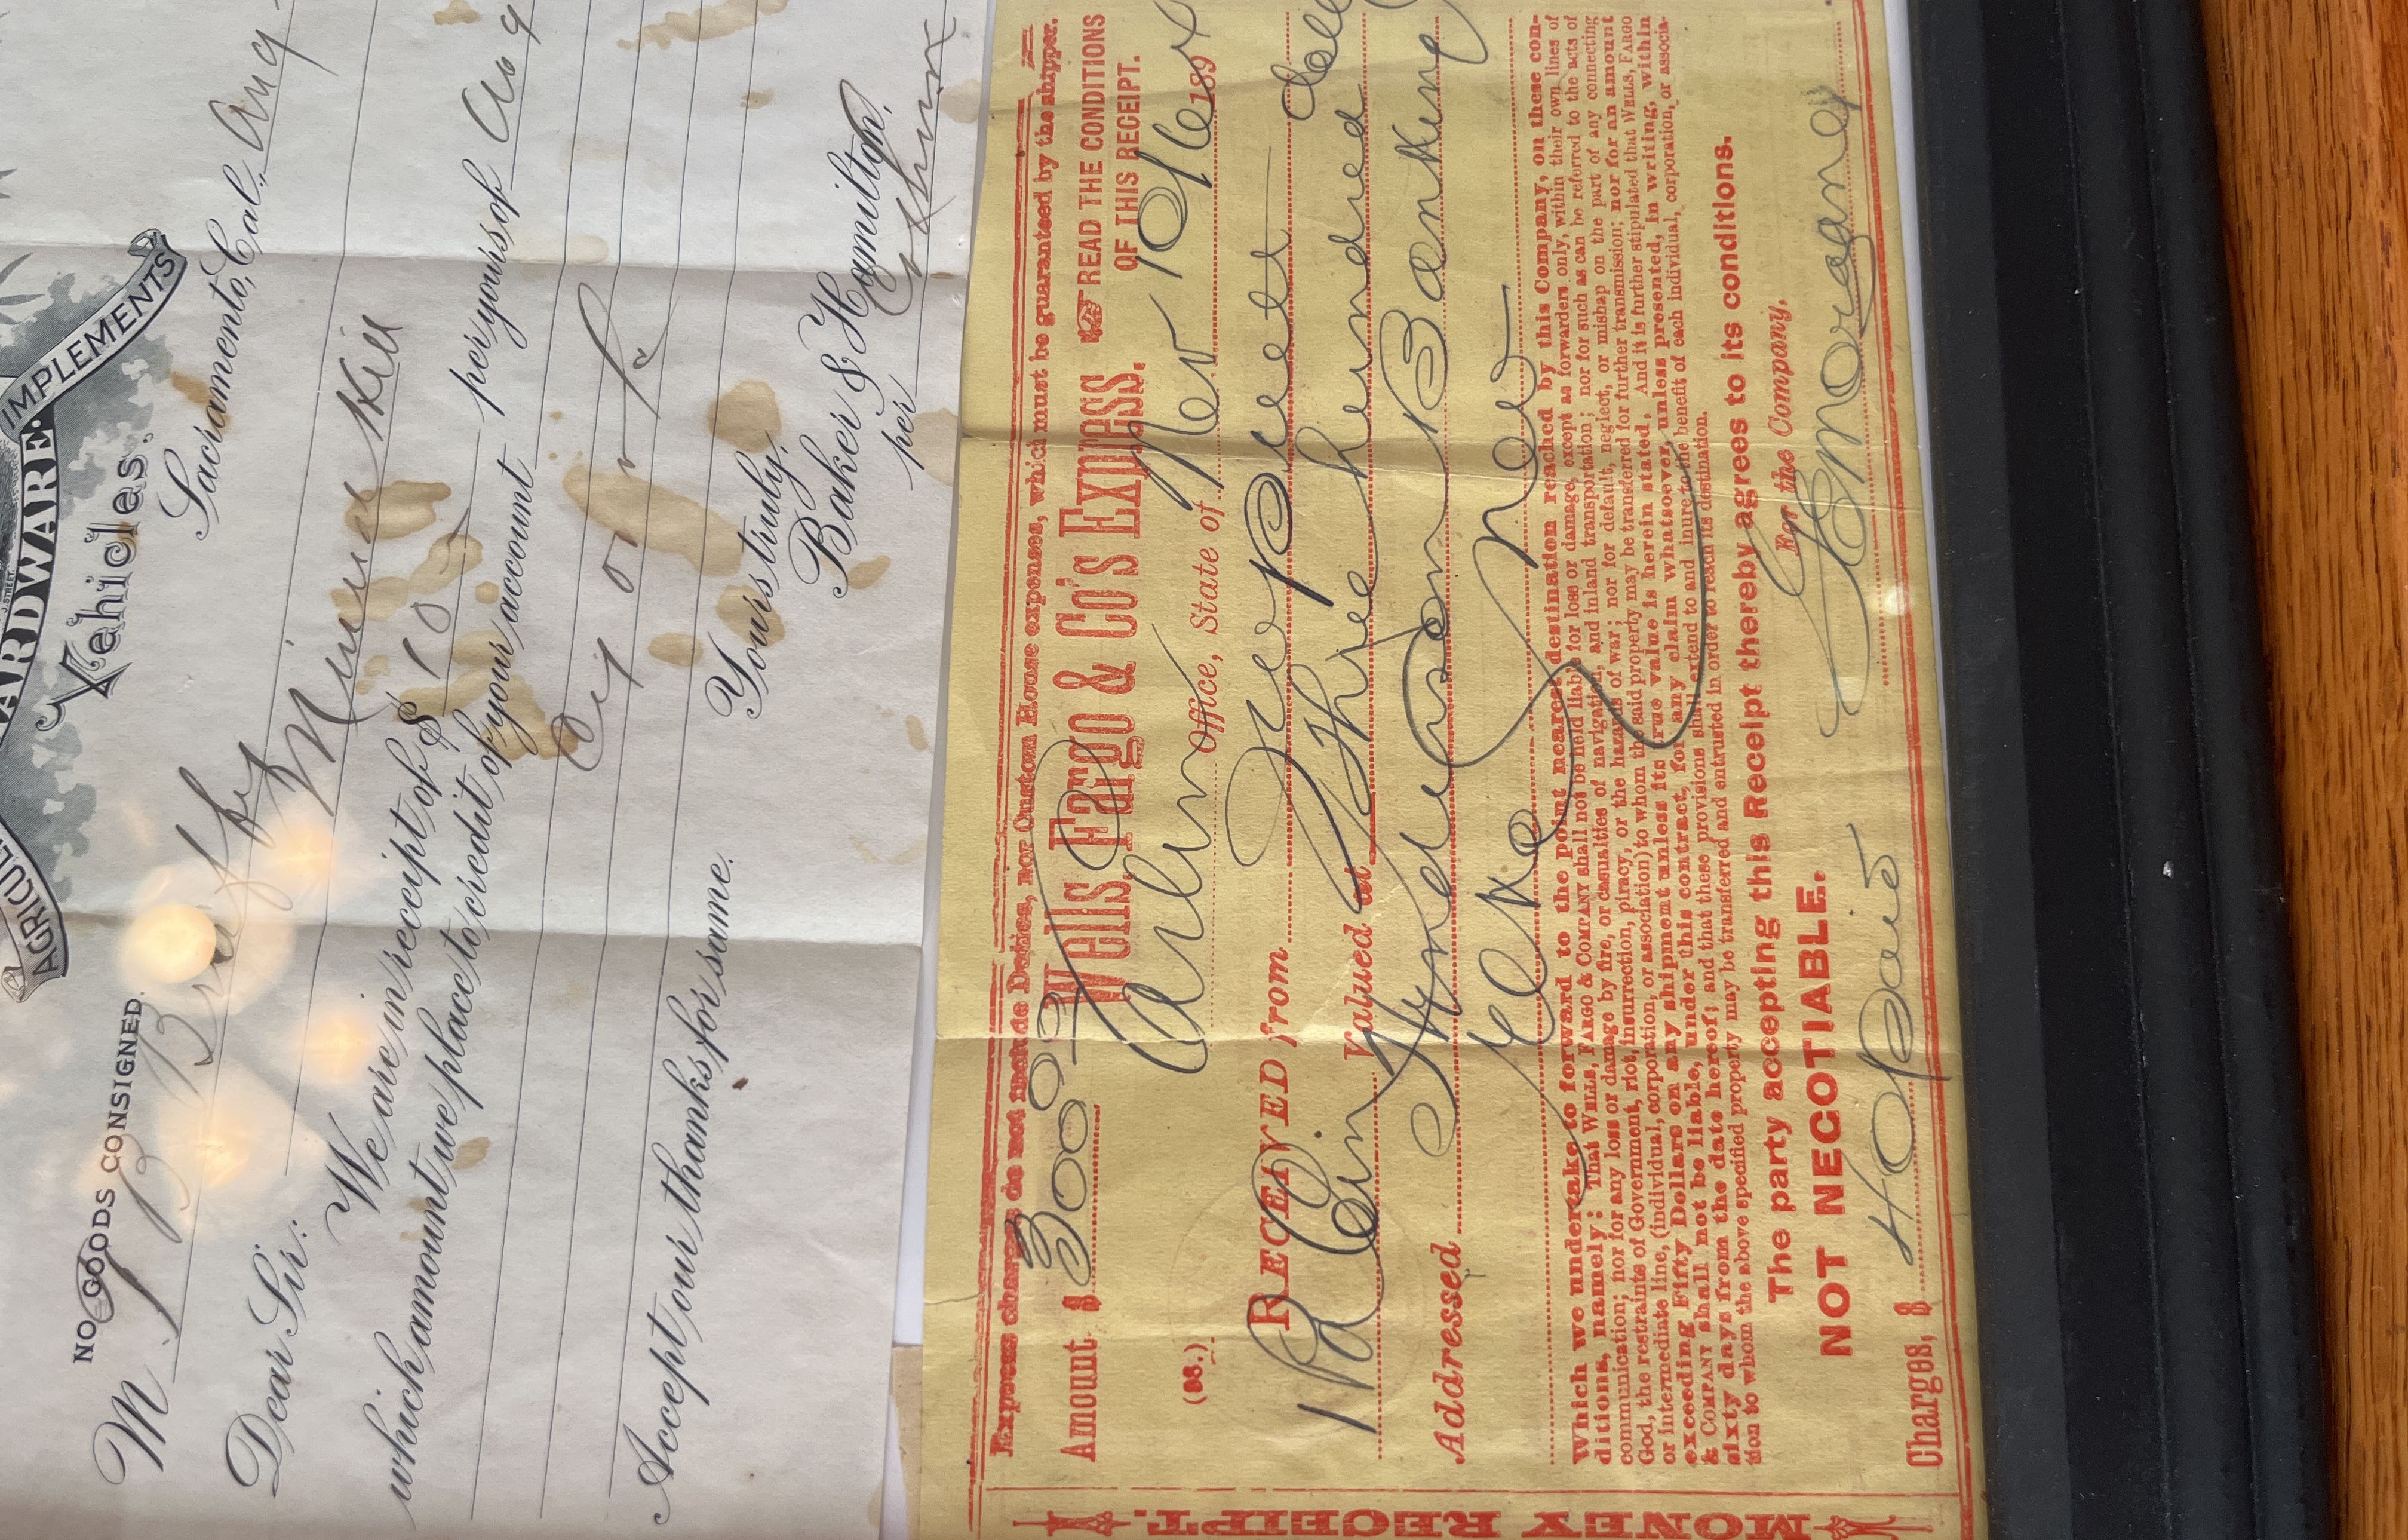 AGRICUL
ARDWARE.
IMPLEMENTS
J. STREET.
Vehicles.
NO GOODS CONSIGNED.
Sacramento, Cal., Aug
M
Dear Sir:
We are in receipt of $ per yours of Aug
which amount we place to credit of your account
Accept our thanks for same.
Yours truly,
Baker & Hamilton,
per
MONEY RECEIPT.
Express charges do not include Duties, nor Custom House expenses, which must be guaranteed by the shipper.
Amount $ 300 00
Wells, Fargo & Co's Express.
READ THE CONDITIONS
OF THIS RECEIPT.
(98.)
Office, State of Nev 189
RECEIVED from
Valued at Three hundred
Addressed Henderson Banking
Elko Nev
Which we undertake to forward to the point nearest destination reached by this Company, on these con-
ditions, namely: That WELLS, FARGO & COMPANY shall not be held liable for loss or damage, except as forwarders only, within their own lines of
communication; nor for any loss or damage by fire, or casualties of navigation, and inland transportation; nor for such as can be referred to the acts of
God, the restraints of Government, riot, insurrection, piracy, or the hazards of war; nor for default, neglect, or mishap on the part of any connecting
or intermediate line, (individual, corporation, or association) to whom the said property may be transferred for further transmission; nor for an amount
exceeding Fifty Dollars on any shipment unless its true value is herein stated. And it is further stipulated that WELLS, FARGO
& COMPANY shall not be liable, under this contract, for any claim whatsoever, unless presented, in writing, within
sixty days from the date hereof; and that these provisions shall extend to and inure to the benefit of each individual, corporation, or associa-
tion to whom the above specified property may be transferred and entrusted in order to reach its destination.
The party accepting this Receipt thereby agrees to its conditions.
NOT NEGOTIABLE.
For the Company,
Charges, $ Paid